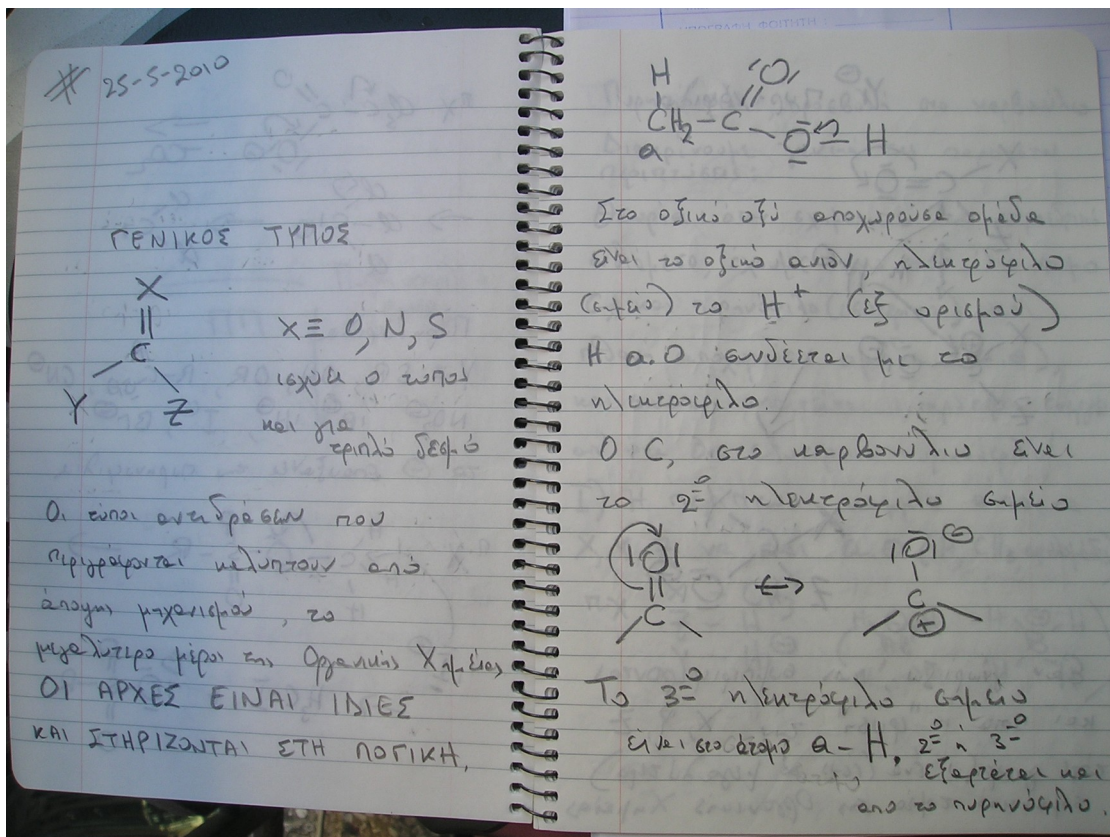 # 25-5-2010
ΓΕΝΙΚΟΣ ΤΥΠΟΣ
X
||
C
Y Z
X≡ O, N, S
ισχύει ο τύπος
και για
τριπλό δεσμό
Οι τύποι αντιδράσεων που
περιγράφονται καλύπτουν από
άποψη μηχανισμού, το
μεγαλύτερο μέρος της Οργανικής Χημείας,
ΟΙ ΑΡΧΕΣ ΕΙΝΑΙ ΙΔΙΕΣ
ΚΑΙ ΣΤΗΡΙΖΟΝΤΑΙ ΣΤΗ ΛΟΓΙΚΗ.
H O
CH2-C-O-H
a
Στο οξικό οξύ αποχωρούσα ομάδα
είναι το οξικό ανιόν, ηλεκτρόφιλο
(σημείο) το H+ (εξ ορισμού)
Η α.Ο συνδέεται με το
ηλεκτρόφιλο.
Ο C, στο καρβονύλιο είναι
το 2º ηλεκτρόφιλο σημείο
|O| ↔ |O| ⊖
C C
+
Το 3º ηλεκτρόφιλο σημείο
είναι στο άτομο a-H, 2º ή 3º
εξαρτάται και
από το πυρηνόφιλο.